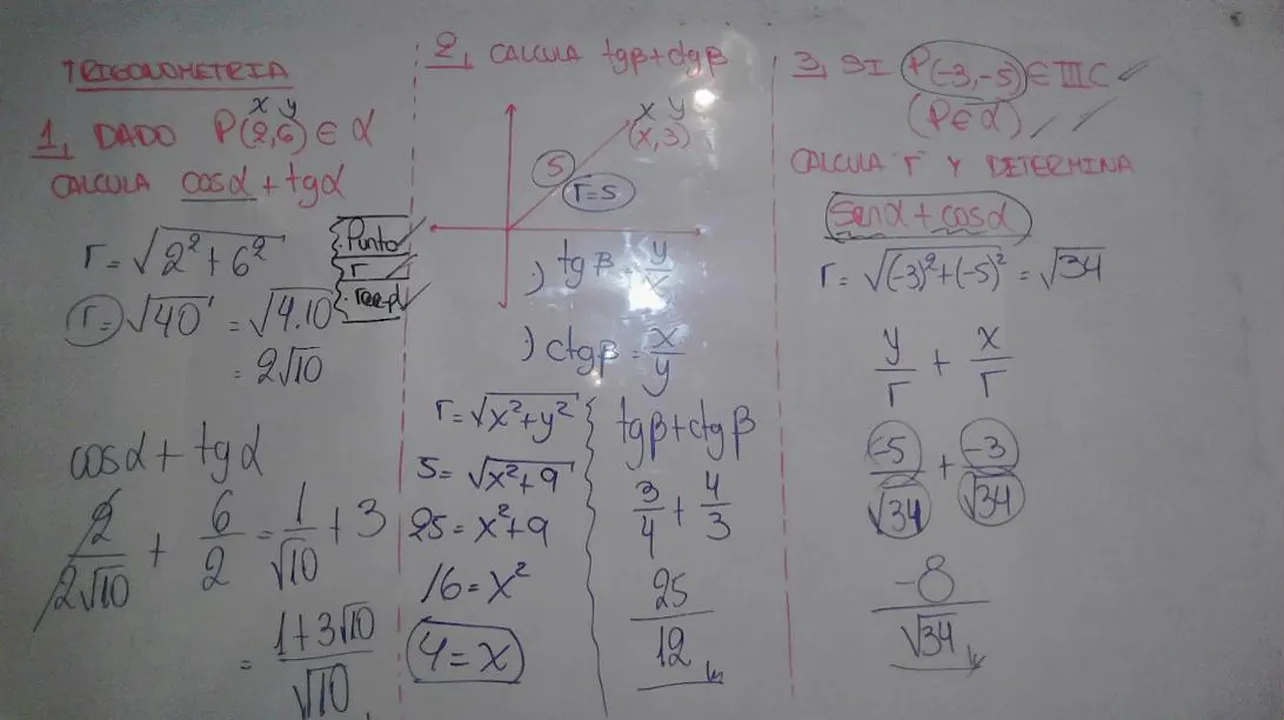 TRIGONOMETRIA
x y
1, DADO P(2,6) ∈ α
CALCULA cosα + tgα
r = √2² + 6²
· Punto
r
· reepl
r = √40 = √4.10
= 2√10
cosα + tgα
2/2√10 + 6/2 = 1/√10 + 3
= 1+3√10/√10
2, CALCULA tgβ + ctgβ
x y
(x,3)
5
r=5
·) tgβ = y/x
·) ctgβ = x/y
r = √x²+y²
5 = √x²+9
25 = x²+9
16 = x²
4 = x
tgβ + ctgβ
3/4 + 4/3
25/12
3, SI P(-3,-5) ∈ IIIC
(P ∈ α)
CALCULA r Y DETERMINA
senα + cosα
r = √(-3)²+(-5)² = √34
y/r + x/r
-5/√34 + -3/√34
-8/√34